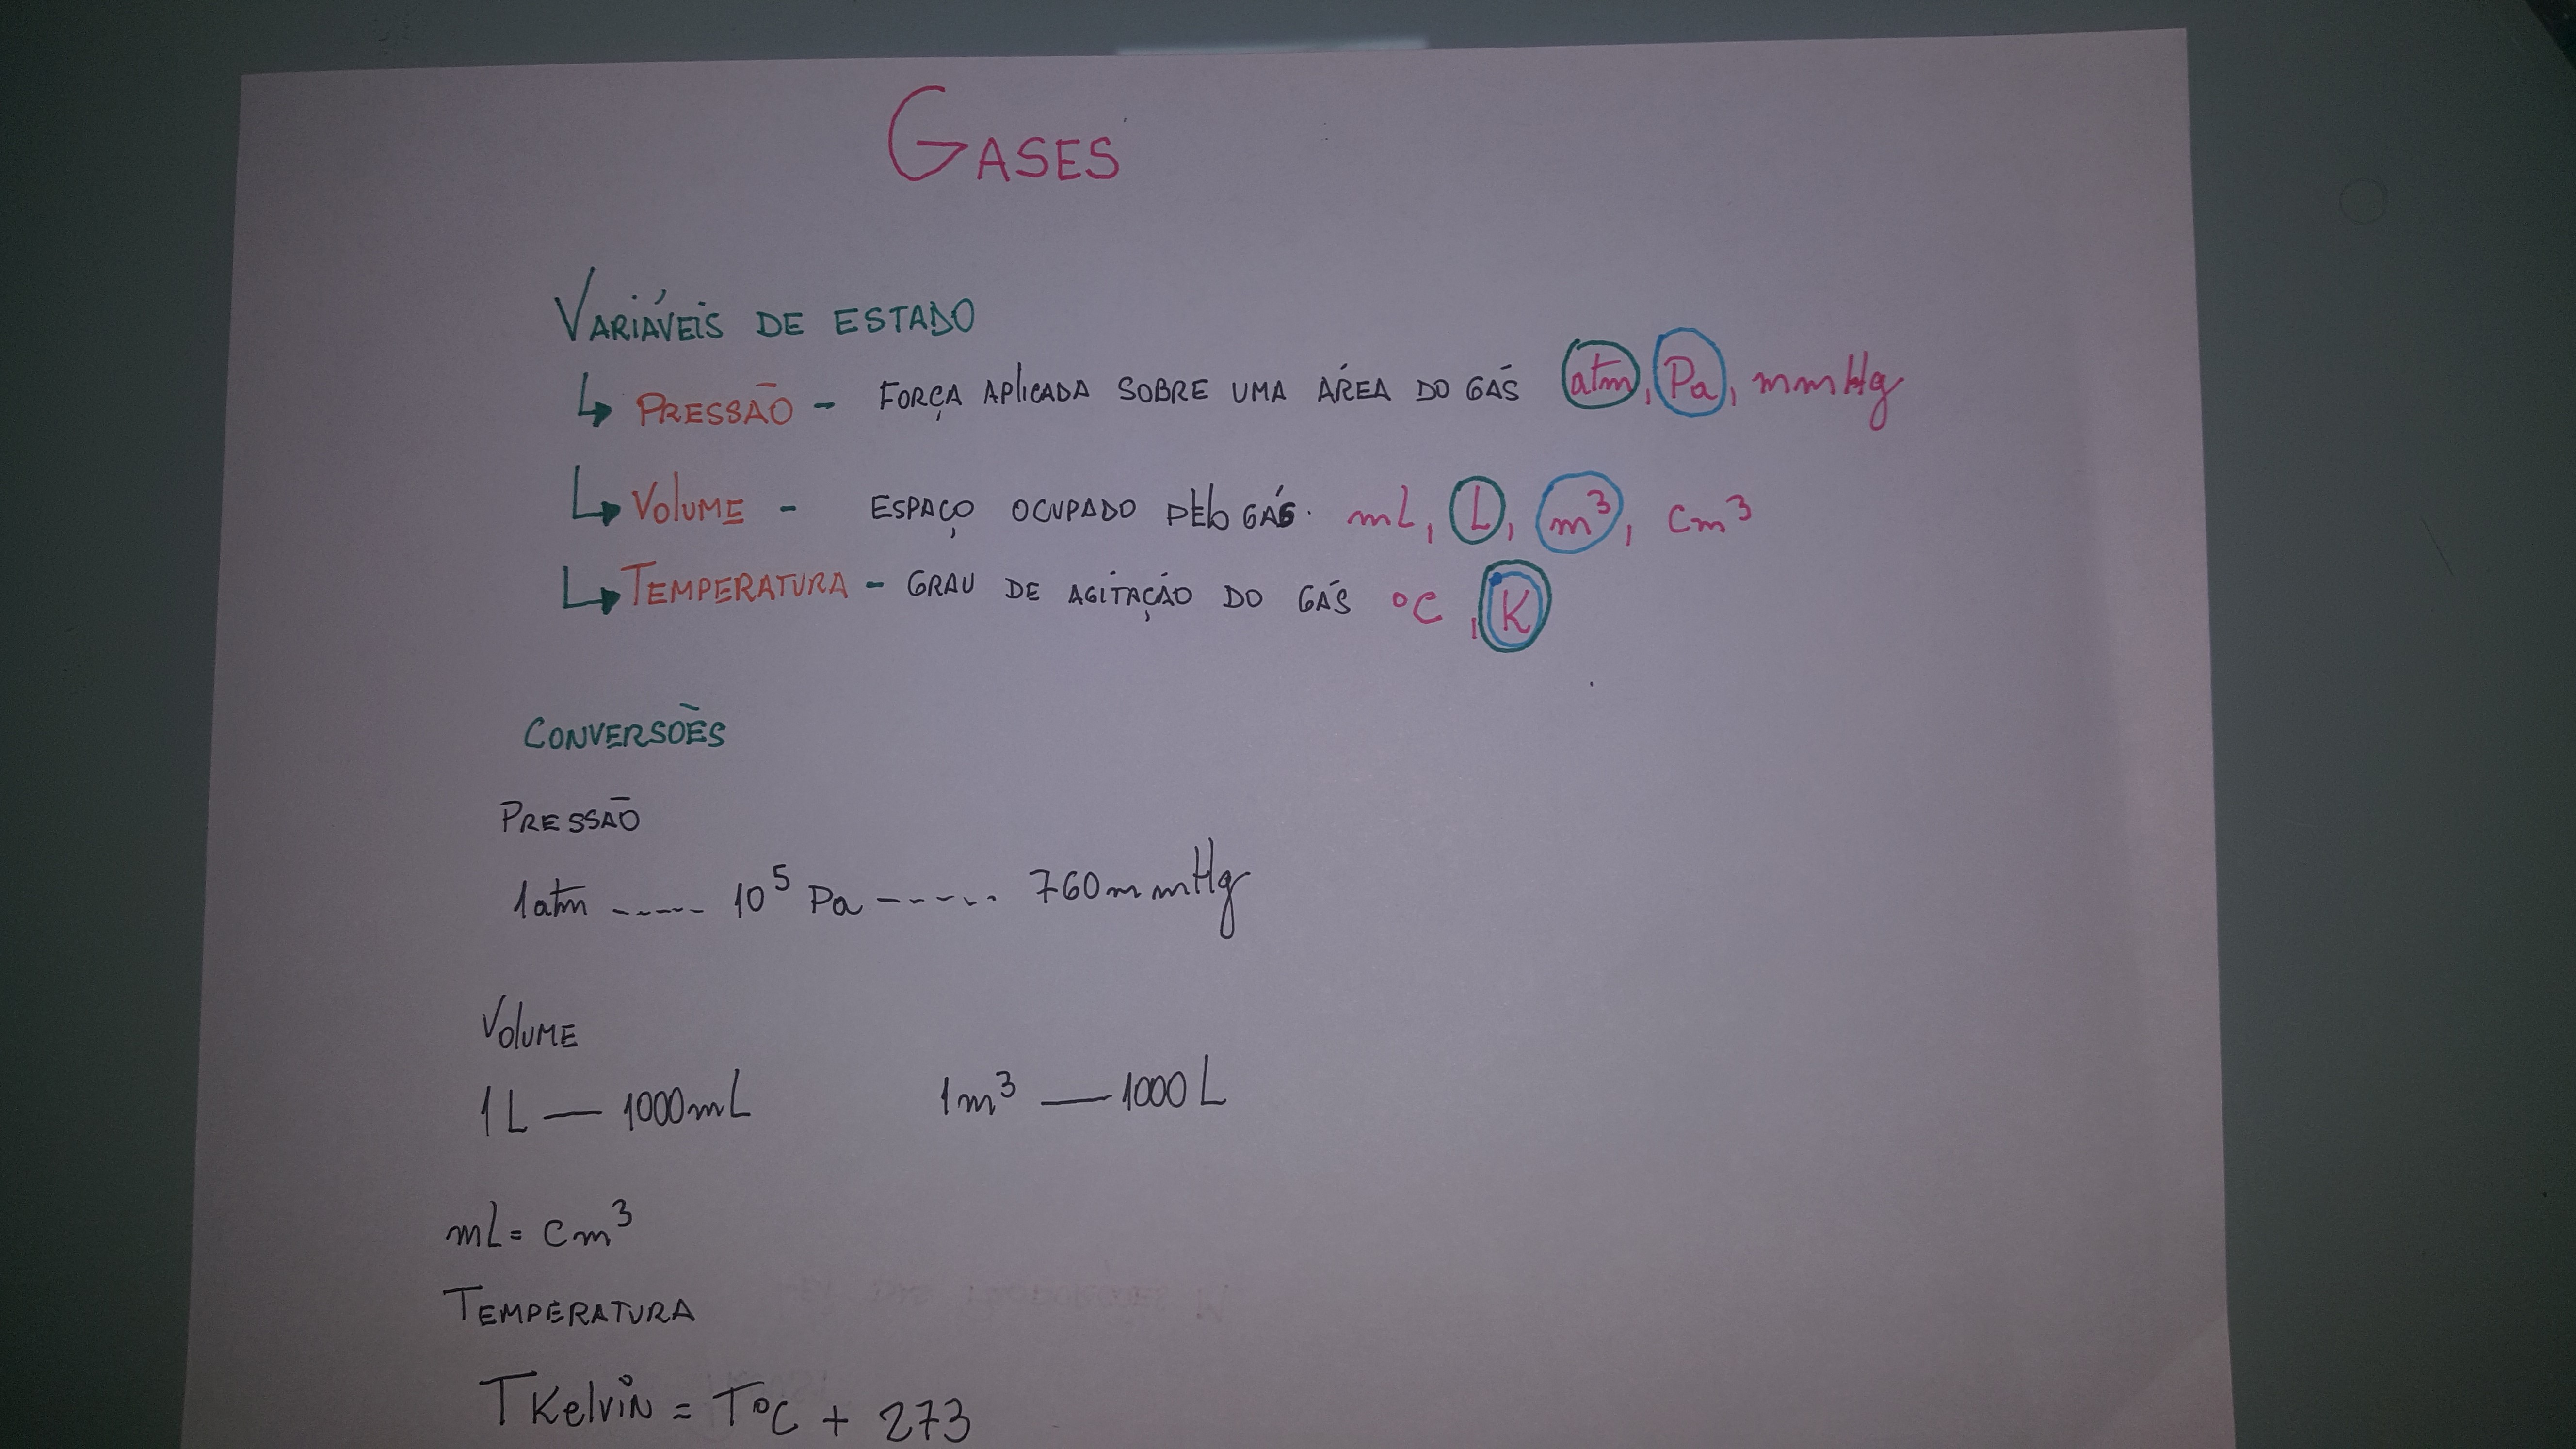 GASES
VARIÁVEIS DE ESTADO
↳ PRESSÃO - FORÇA APLICADA SOBRE UMA ÁREA DO GÁS atm, Pa, mmHg
↳ VOLUME - ESPAÇO OCUPADO PELO GÁS. mL, L, m³, cm³
↳ TEMPERATURA - GRAU DE AGITAÇÃO DO GÁS °C, K
CONVERSÕES
PRESSÃO
1atm ----- 10⁵ Pa ------ 760mmHg
VOLUME
1L — 1000mL 1m³ — 1000L
mL = cm³
TEMPERATURA
TKelvin = T°C + 273